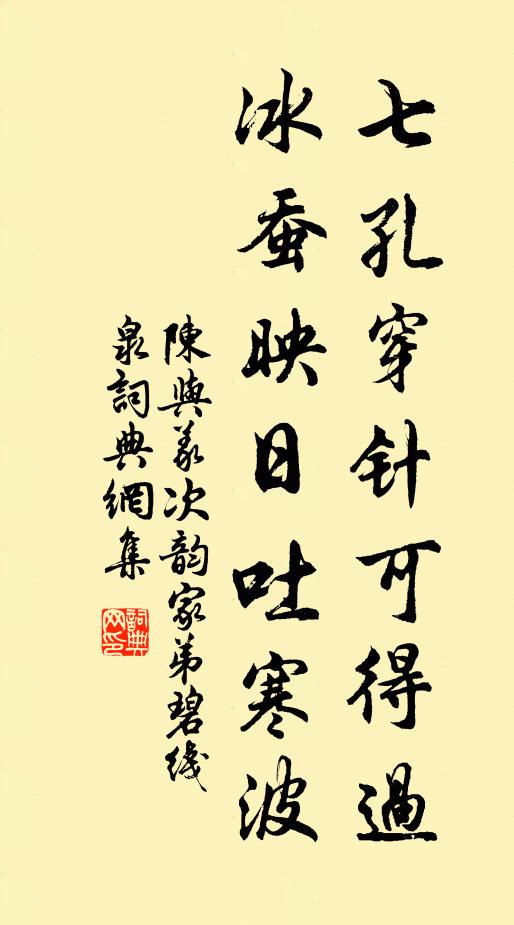 七孔穿针可得過
冰蚕映日吐寒波
陳與义次韵家弟碧线
泉詞典網集
詞典网印